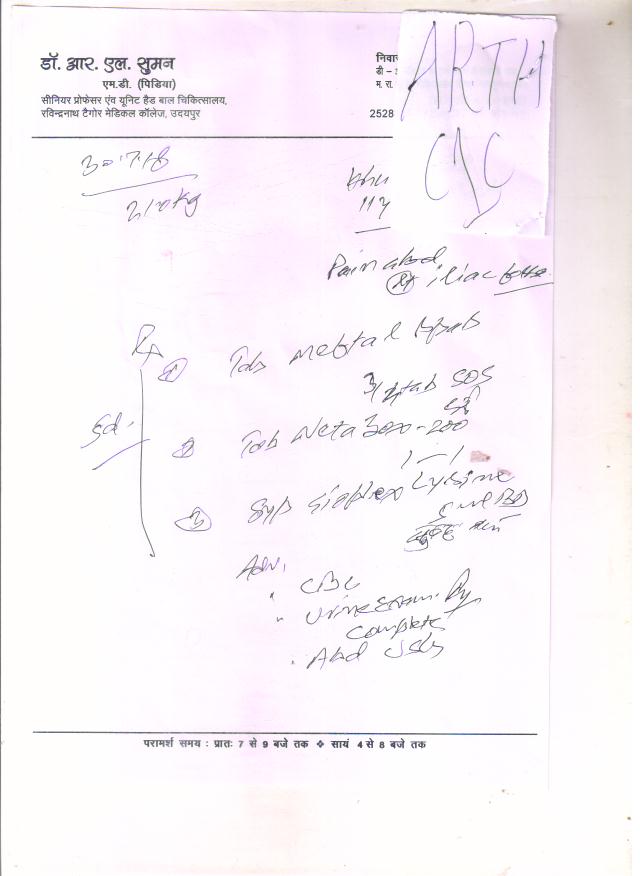 डॉ. आर. एल. सुमन
एम.डी. (पिडिया)
सीनियर प्रोफेसर एंव यूनिट हैड बाल चिकित्सालय,
रविन्द्रनाथ टैगोर मेडिकल कॉलेज, उदयपुर
निवा
डी –
म. रा.
2528
ARTH
30.7.18
kg
11y
Pain abd
Rt iliac
Rx
1 Tab Meftal
3/4 tab SOS
5d.
2 Tab 200
1 – 1
3 Syp Lysine
5 ml BD
Adv.
CBC
Urine Exam.
Complete
Abd USG
परामर्श समय : प्रातः 7 से 9 बजे तक ❖ सायं 4 से 8 बजे तक